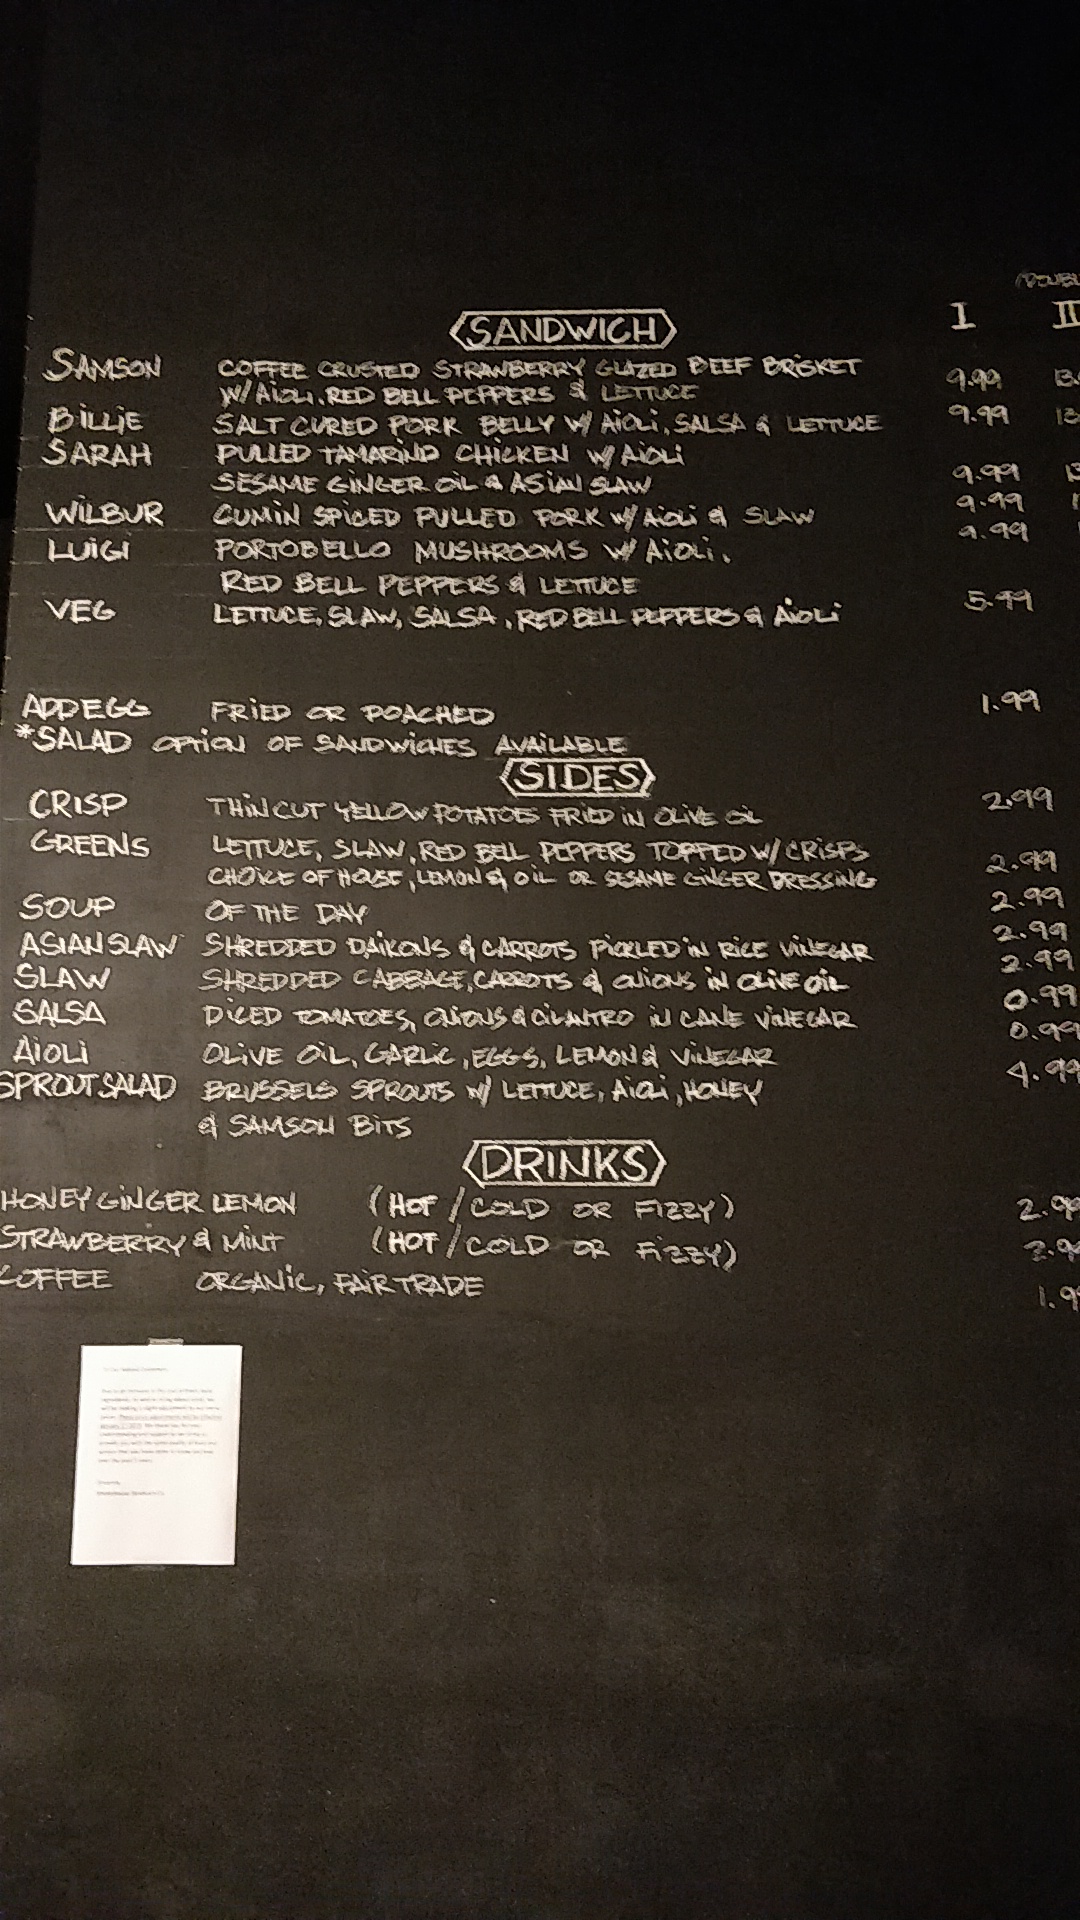 SANDWICH I II
SAMSON COFFEE CRUSTED STRAWBERRY GLAZED BEEF BRISKET 9.99
W/ AIOLI, RED BELL PEPPERS & LETTUCE
BILLIE SALT CURED PORK BELLY W/ AIOLI, SALSA & LETTUCE 9.99
SARAH PULLED TAMARIND CHICKEN W/ AIOLI
SESAME GINGER OIL & ASIAN SLAW 9.99
WILBUR CUMIN SPICED PULLED PORK W/ AIOLI & SLAW 9.99
LUIGI PORTOBELLO MUSHROOMS W/ AIOLI, 9.99
RED BELL PEPPERS & LETTUCE
VEG LETTUCE, SLAW, SALSA, RED BELL PEPPERS & AIOLI 5.99
ADD EGG FRIED OR POACHED 1.99
*SALAD OPTION OF SANDWICHES AVAILABLE
SIDES
CRISP THIN CUT YELLOW POTATOES FRIED IN OLIVE OIL 2.99
GREENS LETTUCE, SLAW, RED BELL PEPPERS TOPPED W/ CRISPS 2.99
CHOICE OF HOUSE, LEMON & OIL OR SESAME GINGER DRESSING
SOUP OF THE DAY 2.99
ASIAN SLAW SHREDDED DAIKONS & CARROTS PICKLED IN RICE VINEGAR 2.99
SLAW SHREDDED CABBAGE, CARROTS & ONIONS IN OLIVE OIL 2.99
SALSA DICED TOMATOES, ONIONS & CILANTRO IN CANE VINEGAR 0.99
AIOLI OLIVE OIL, GARLIC, EGGS, LEMON & VINEGAR 0.99
SPROUT SALAD BRUSSELS SPROUTS W/ LETTUCE, AIOLI, HONEY 4.99
& SAMSON BITS
DRINKS
HONEY GINGER LEMON (HOT / COLD OR FIZZY)
STRAWBERRY & MINT (HOT / COLD OR FIZZY)
COFFEE ORGANIC, FAIR TRADE